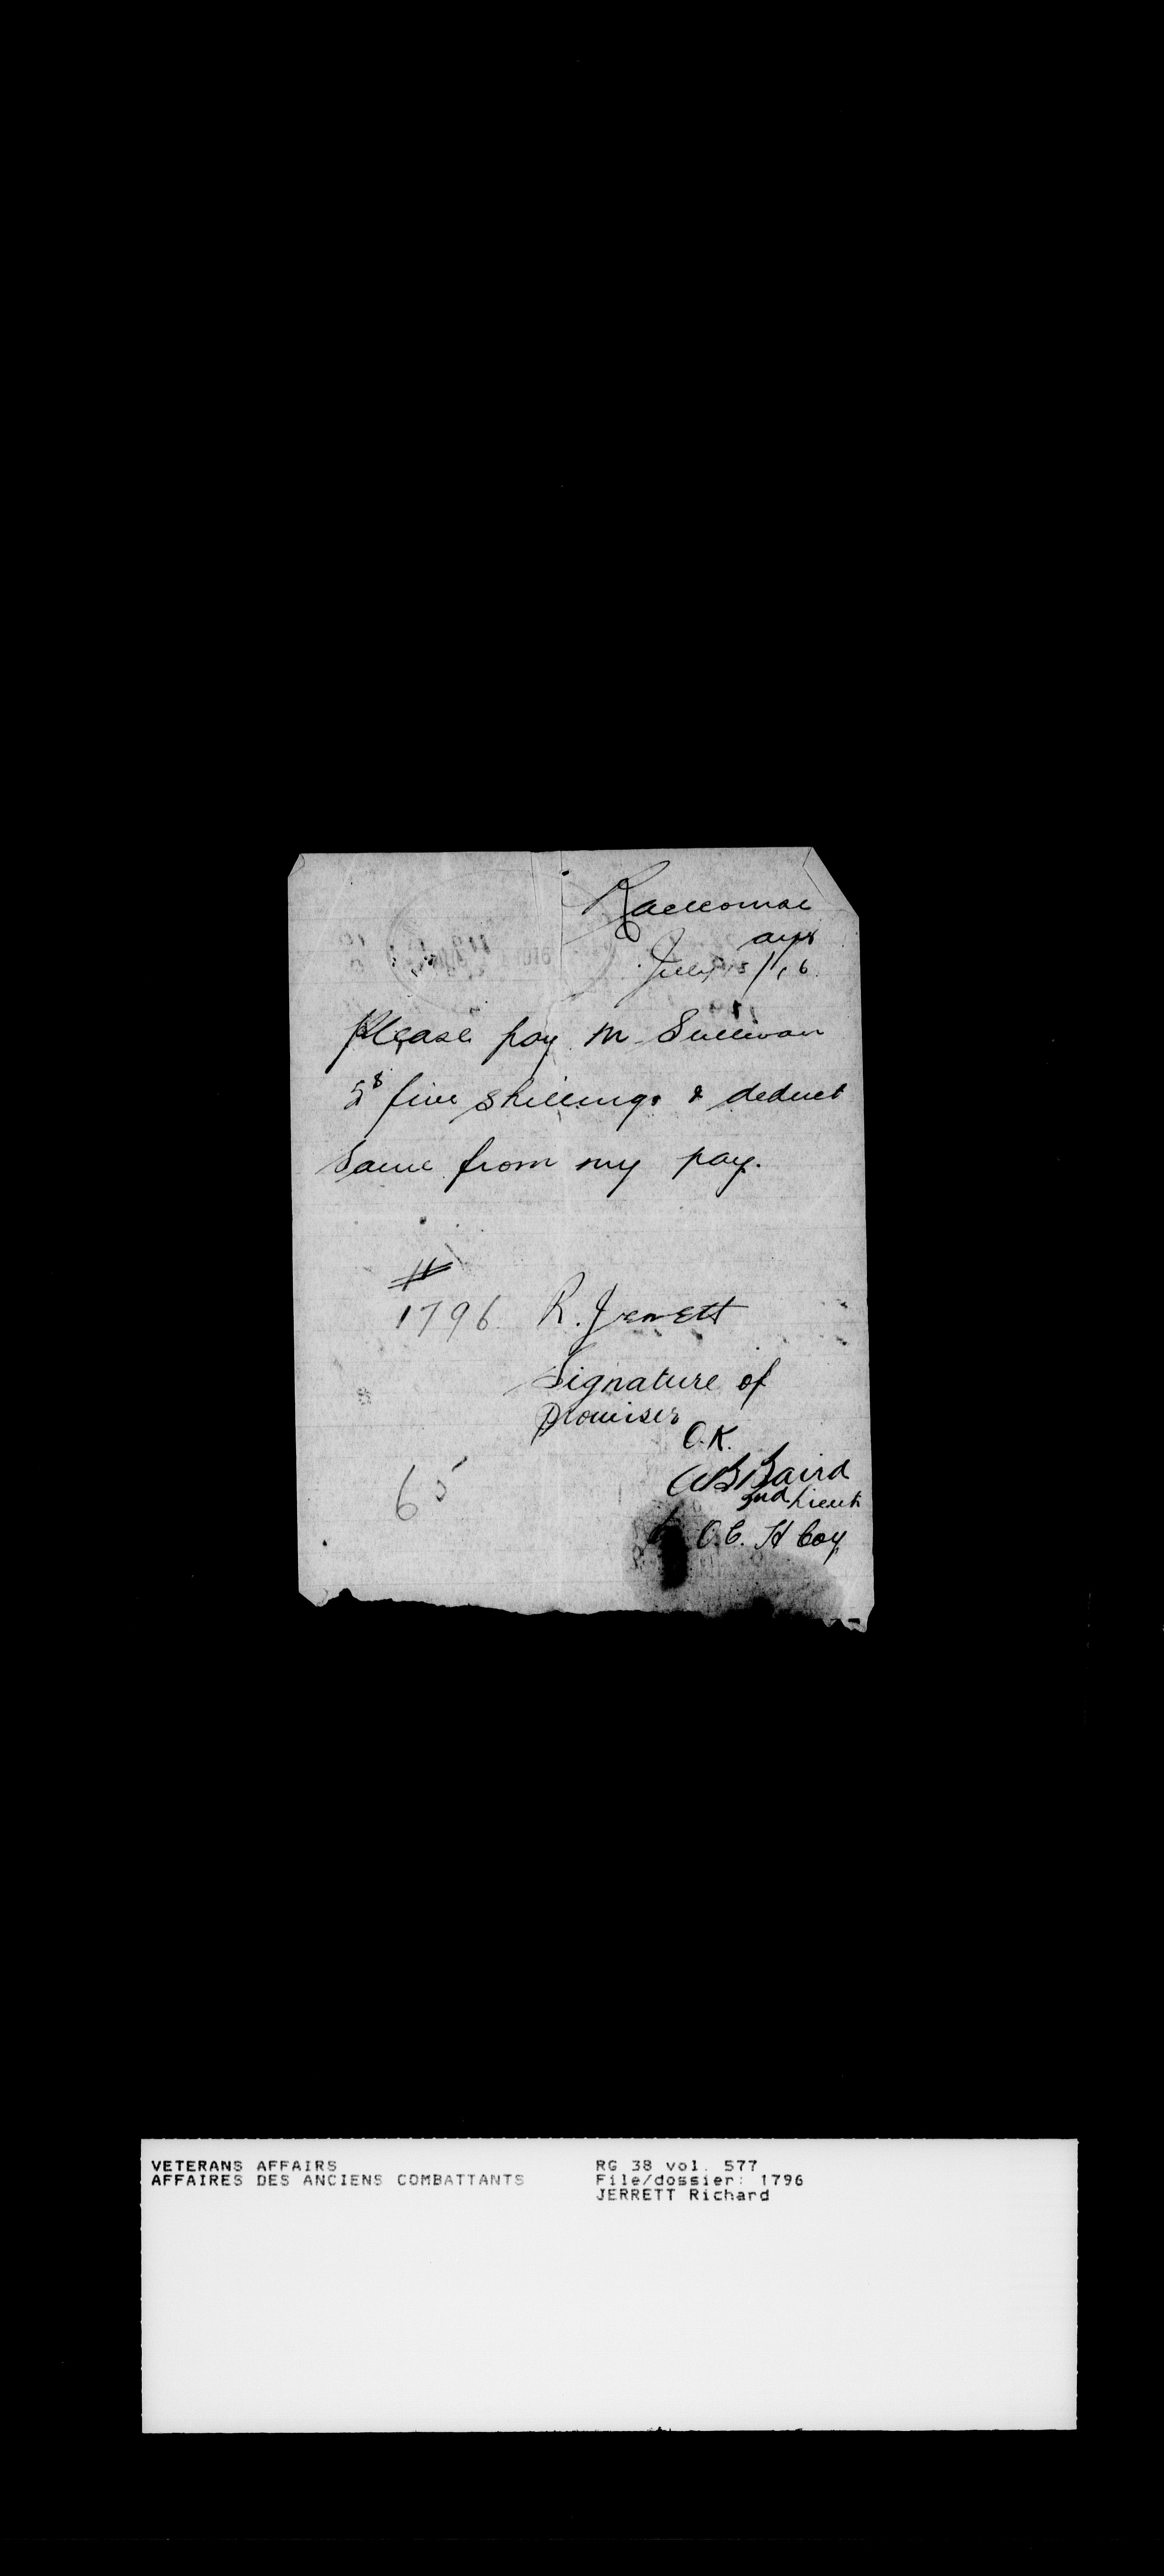 Racecourse
Ayr
July 13/16
Please pay M Sullivan
5s five shillings & deduct
same from my pay.
#
1796 R. Jerrett
Signature of
promiser
O.K.
2nd Lieut
O.C. H Coy
65
VETERANS AFFAIRS
AFFAIRES DES ANCIENS COMBATTANTS
RG 38 vol. 577
File/dossier: 1796
JERRETT Richard